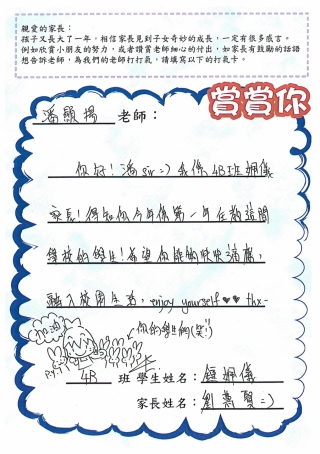 親愛的家長：
孩子又長大了一年，相信家長見到子女奇妙的成長，一定有很多感言。
例如欣賞小朋友的努力，或者讚賞老師細心的付出，如家長有鼓勵的話語
想告訴老師，為我們的老師打打氣，請填寫以下的打氣卡。
賞賞你
潘顯揚 老師：
你好！潘sir=) 我係4B班姍儀
家長！得知你今年係第一年在教這間
學校的學生！希望你能夠快快適應，
融入校園生活，enjoy yourself♥♥ thx~
你的學生們(笑!)
加油!
4B 班 學生姓名：鍾姍儀
家長姓名：劉嘉賢=)